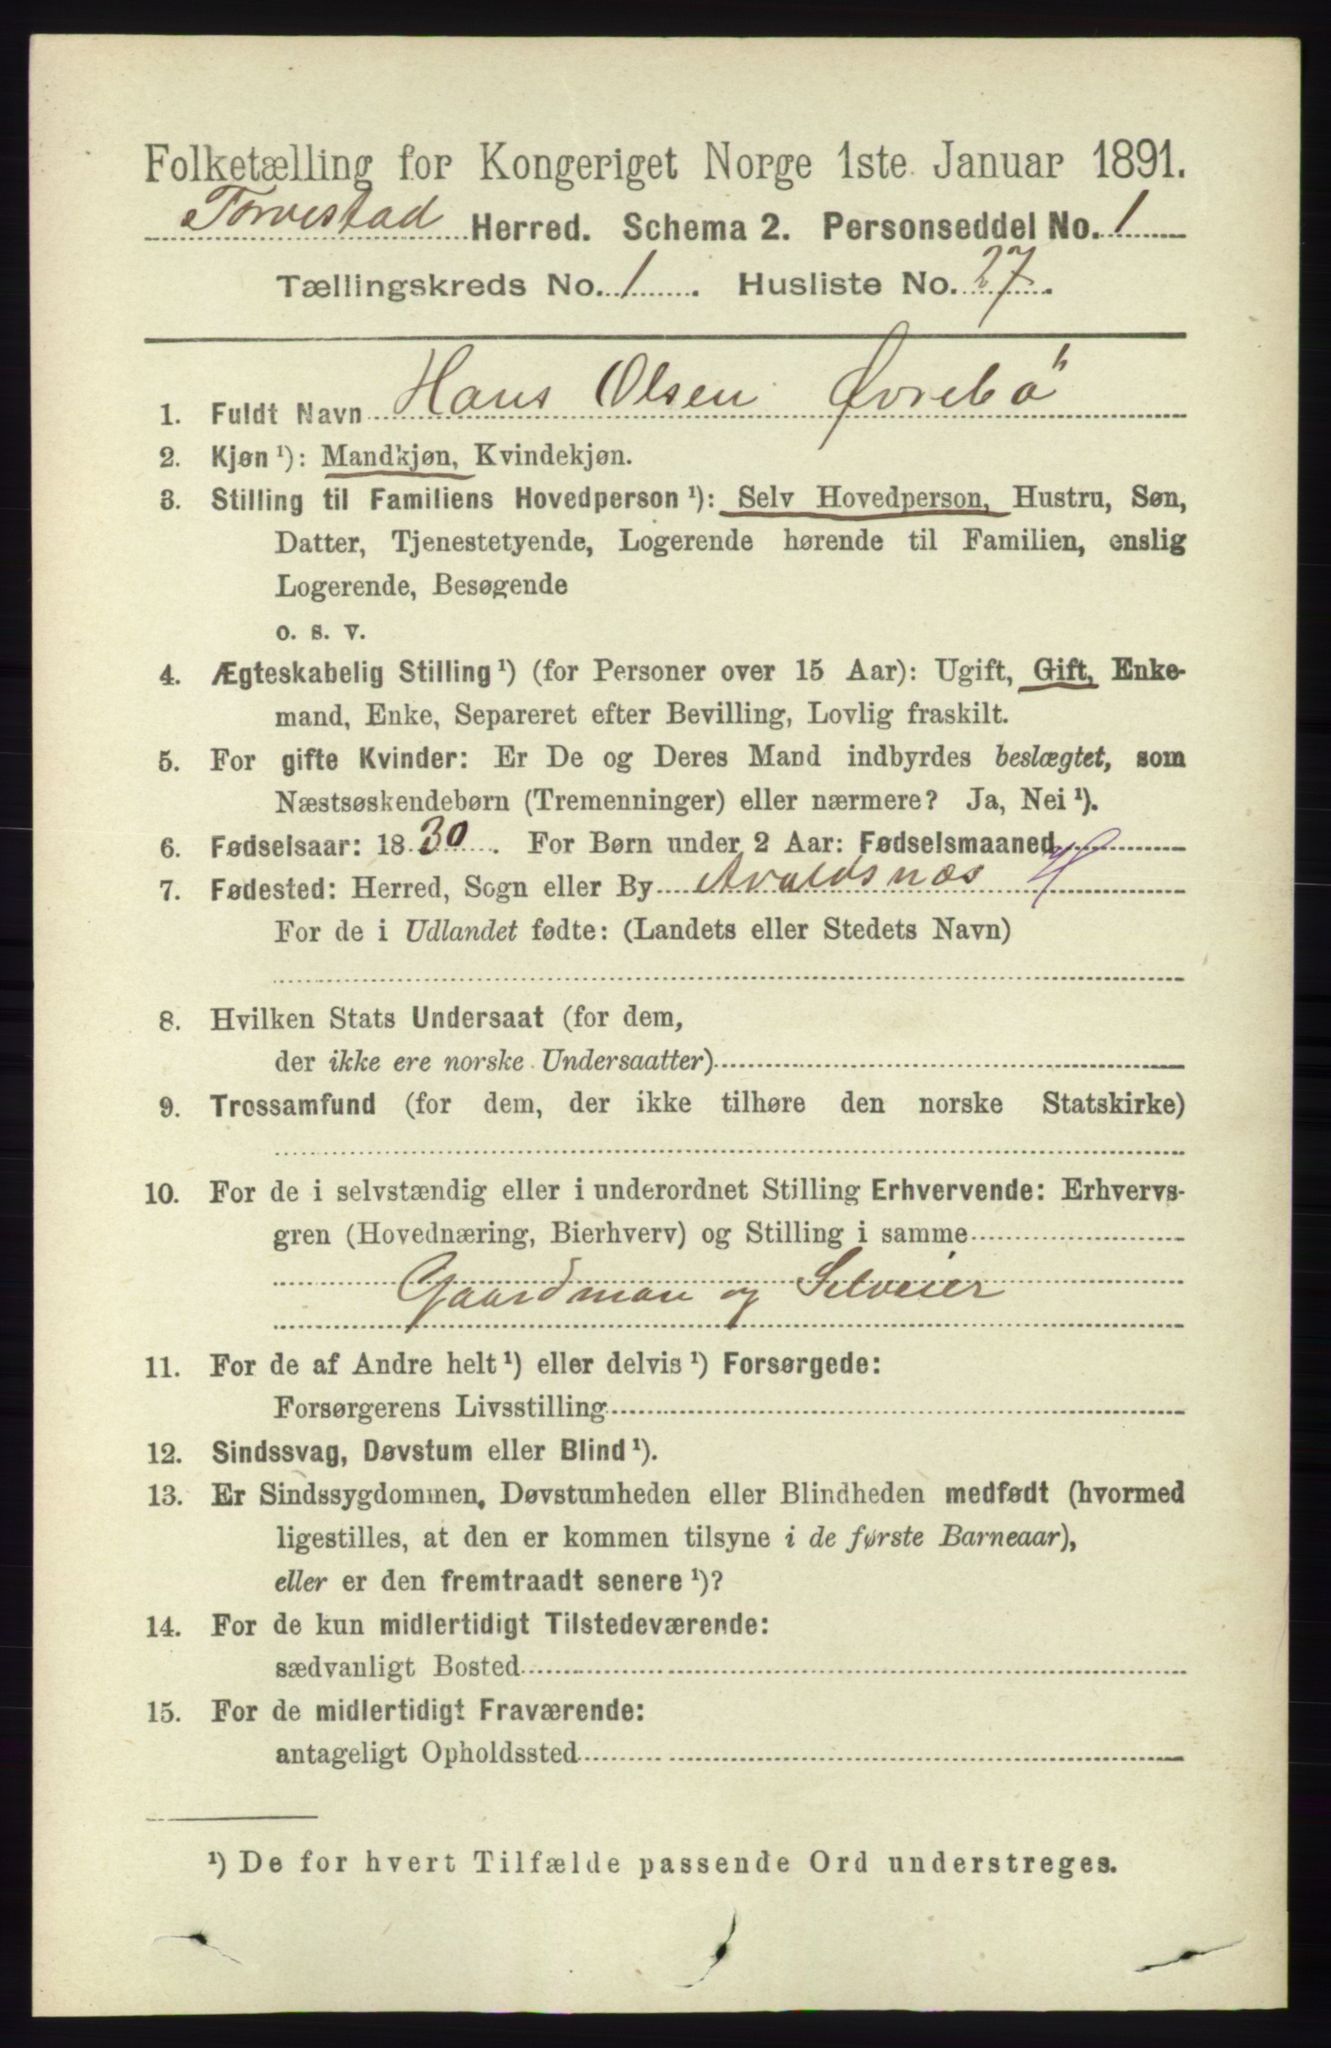 Folketælling for Kongeriget Norge 1ste Januar 1891.
Torvestad Herred. Schema 2. Personseddel No. 1
Tællingskreds No. 1. Husliste No. 27.
1. Fuldt Navn Hans Olsen Øvrebö
2. Kjøn ¹): Mandkjøn, Kvindekjøn.
3. Stilling til Familiens Hovedperson ¹): Selv Hovedperson, Hustru, Søn,
Datter, Tjenestetyende, Logerende hørende til Familien, enslig
Logerende, Besøgende
o. s. v.
4. Ægteskabelig Stilling ¹) (for Personer over 15 Aar): Ugift, Gift, Enke-
mand, Enke, Separeret efter Bevilling, Lovlig fraskilt.
5. For gifte Kvinder: Er De og Deres Mand indbyrdes beslægtet, som
Næstsøskendebørn (Tremenninger) eller nærmere? Ja, Nei ¹).
6. Fødselsaar: 1830. For Børn under 2 Aar: Fødselsmaaned
7. Fødested: Herred, Sogn eller By Avaldsnæs
For de i Udlandet fødte: (Landets eller Stedets Navn)
8. Hvilken Stats Undersaat (for dem,
der ikke ere norske Undersaatter)
9. Trossamfund (for dem, der ikke tilhøre den norske Statskirke)
10. For de i selvstændig eller i underordnet Stilling Erhvervende: Erhvervs-
gren (Hovednæring, Bierhverv) og Stilling i samme
Gaardman og Selveier
11. For de af Andre helt ¹) eller delvis ¹) Forsørgede:
Forsørgerens Livsstilling
12. Sindssvag, Døvstum eller Blind ¹).
13. Er Sindssygdommen, Døvstumheden eller Blindheden medfødt (hvormed
ligestilles, at den er kommen tilsyne i de første Barneaar),
eller er den fremtraadt senere ¹)?
14. For de kun midlertidigt Tilstedeværende:
sædvanligt Bosted
15. For de midlertidigt Fraværende:
antageligt Opholdssted
¹) De for hvert Tilfælde passende Ord understreges.